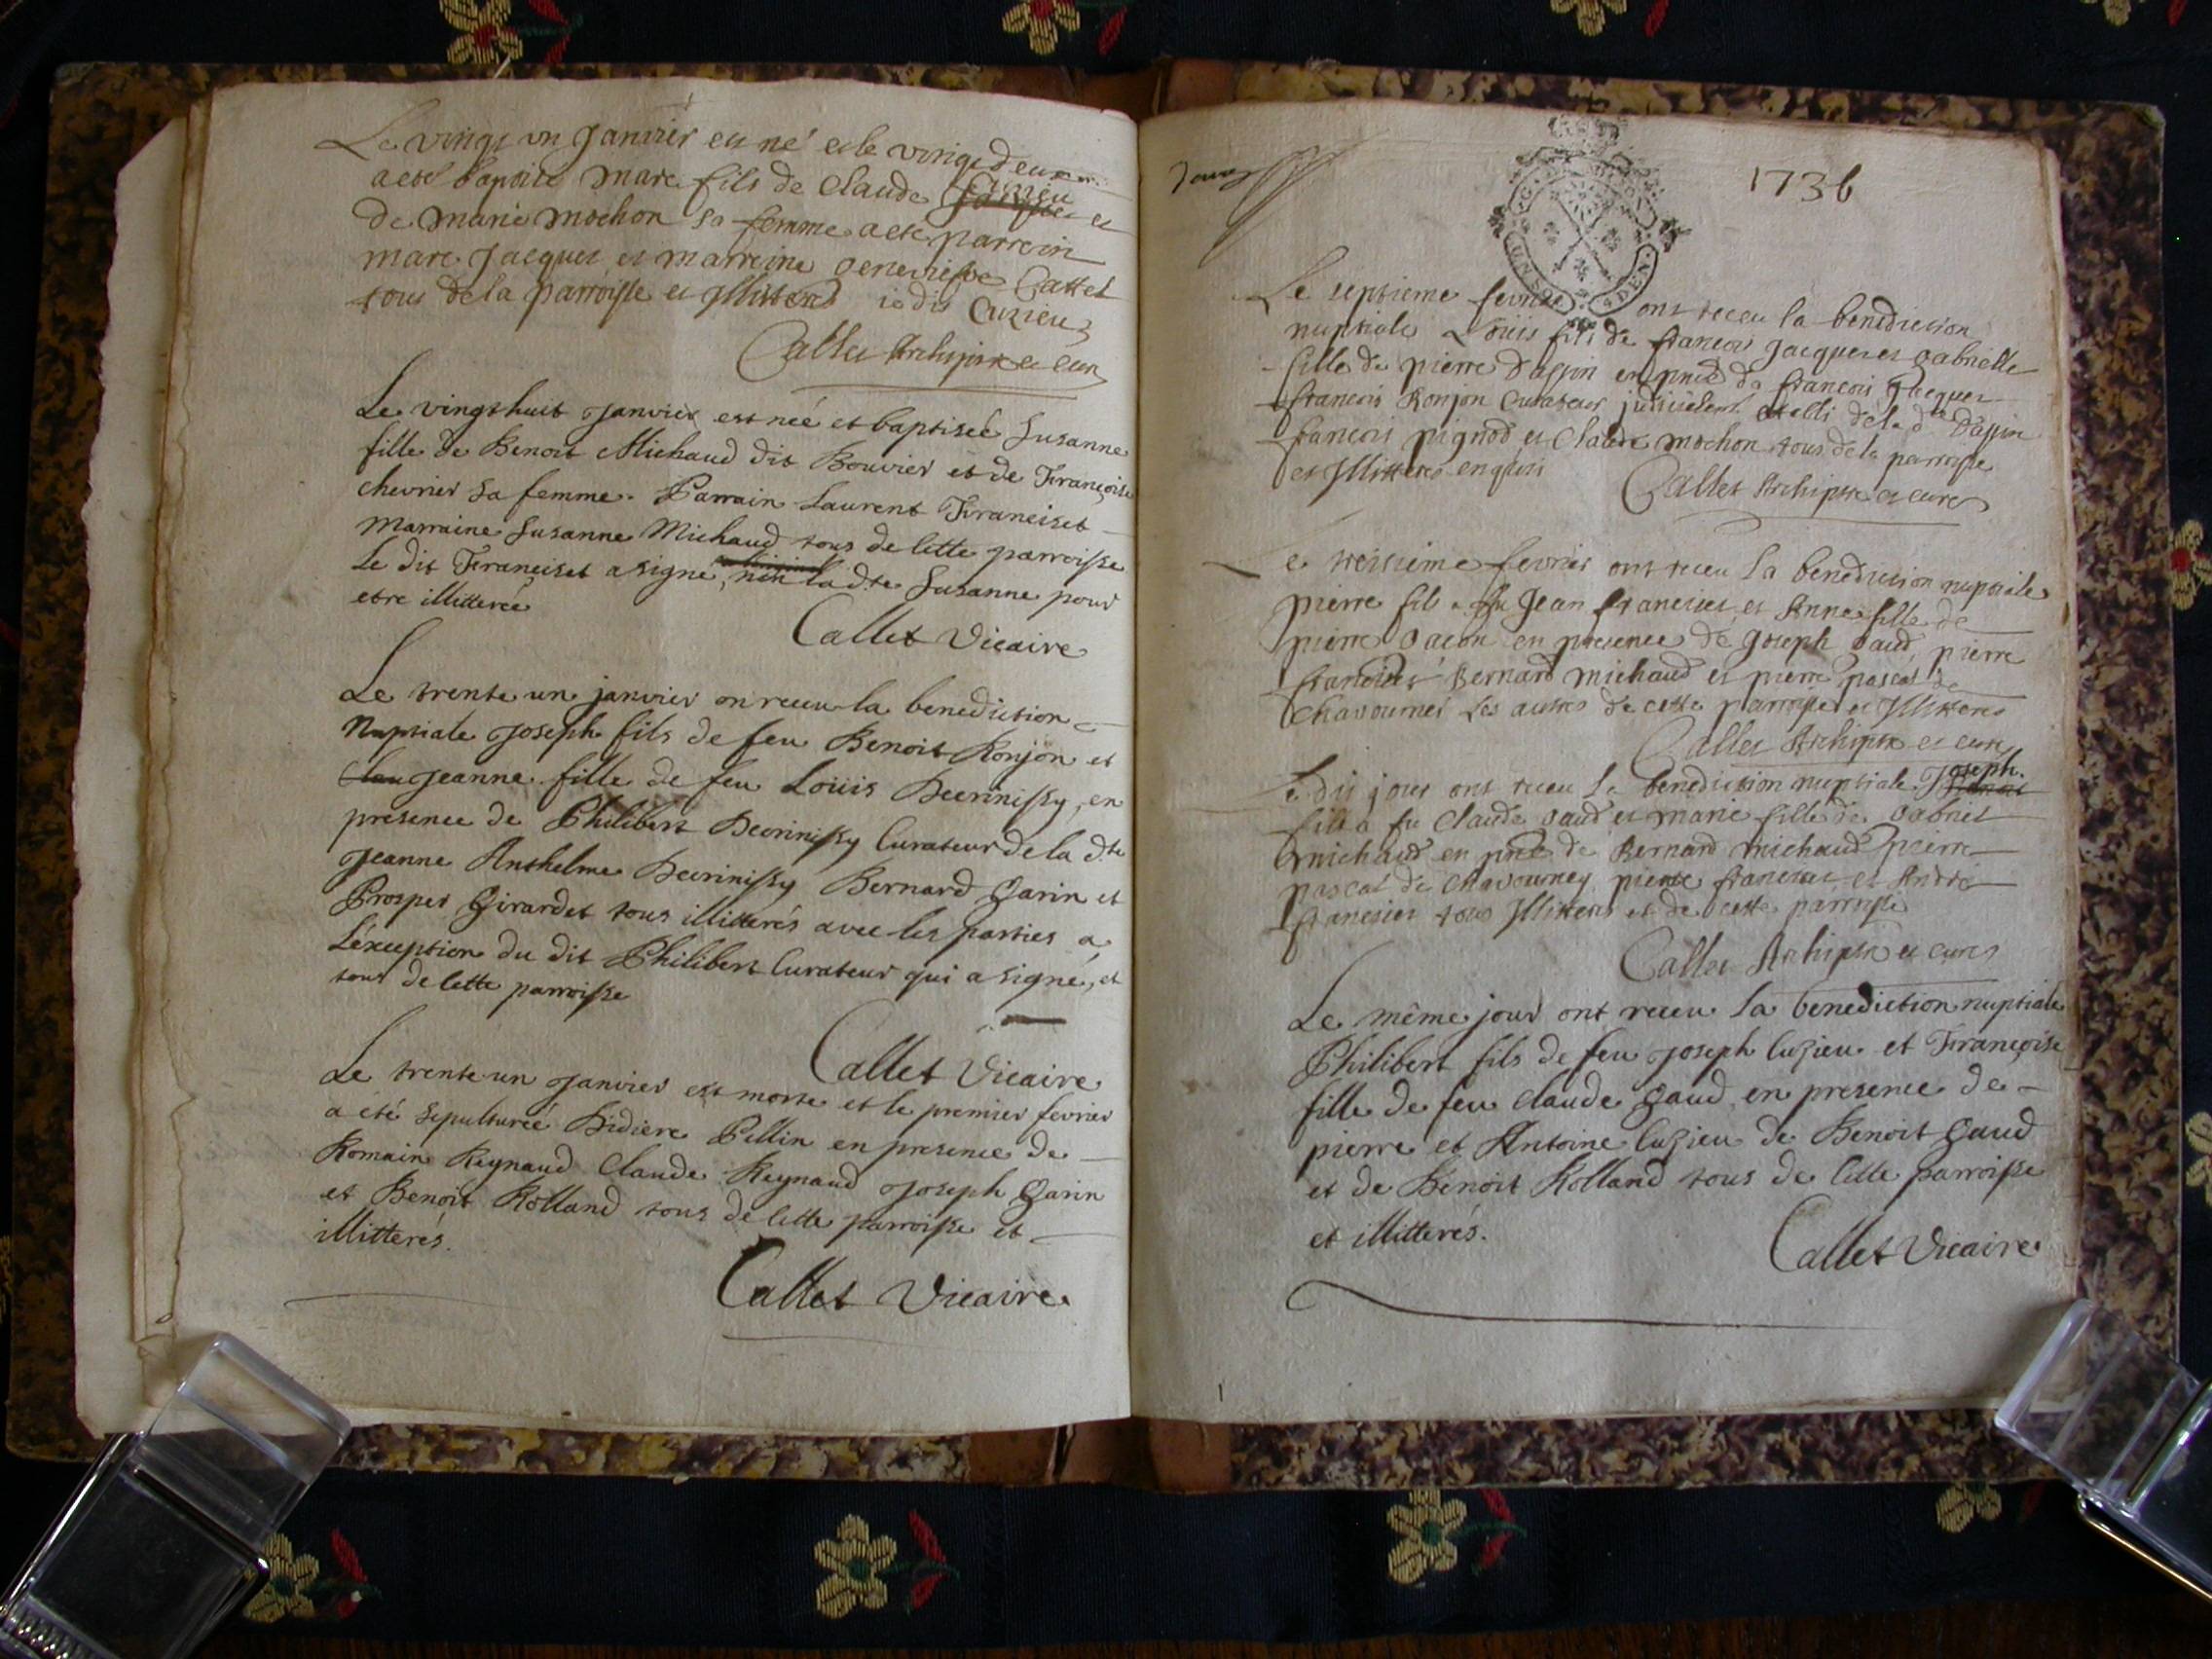 Le vingt un Janvier est né et le vingt deux
a eté baptisé Marc fils de Claude Cuzieu et
de marie mochon sa femme a eté parrein
marc Jacquet et marreine genevieve Cattet
tous de la parroisse et Illitterés Cuzieu
Callet Archiptre et curé
Le vingt huit janvier est neé et baptiseé Susanne
fille de Benoit Michaud dit Bouvier et de Françoise
chevrier sa femme. Parrain Laurent Franciset
Marraine Susanne Michaud tous de cette parroisse
Le dit Franciset a signé, non la dte Susanne pour
etre illitterée
Callet Vicaire
Le trente un janvier on receu la benediction
Nuptiale joseph fils de feu Benoit Ronjon et
jeanne fille de feu Loüis Decrinissy, en
presence de Philibert Decrinissy Curateur de la dte
jeanne Anthelme Decrinissy Bernard Garin et
Prosper Girardet tous illitterés avec les parties a
L'exception du dit Philibert Curateur qui a signé, et
tous de cette parroisse
Callet Vicaire
Le trente un janvier est morte et le premier fevrier
a été sepultureé Didiere Pellin en presence de
Romain Reynaud Claude Reynaud joseph Garin
et Benoit Rolland tous de cette parroisse et
illitterés.
Callet Vicaire
1736
Le septieme fevrier ont receu la benediction
nuptiale Loüis fils de francois Jacquet et gabrielle
fille de pierre Dassin en pnce de francois Jacquet
francois Ronjon Curateur de la dte Dassin
francois pignod et Claude mochon tous de la parroisse
et Illitterés enquis
Callet Archiptre et curé
e treisieme fevrier ont receu la benediction nuptiale
pierre fils a fu Jean franciset et Anne fille de
pierre en presence de Joseph gaud, pierre
franciset Bernard michaud et pierre pascal de
Chavournet Les autres de cette parroisse et Illitterés
Callet Archiptre et curé
Le dit jour ont receu la benediction nuptiale Joseph
fils a fu Claude gaud et marie fille de gabriel
michaud en pnce de Bernard michaud pierre
pascal de chavourney pierre franciset et André
franciset tous Illitterés et de cette parroisse
Callet Archiptre et curé
Le même jour ont receu la benediction nuptiale
Philibert fils de feu joseph Cuzieu et Françoise
fille de feu claude Gaud en presence de
pierre et Antoine Cuzieu de Benoit Gaud
et de Benoit Rolland tous de cette parroisse
et illitterés.
Callet Vicaire